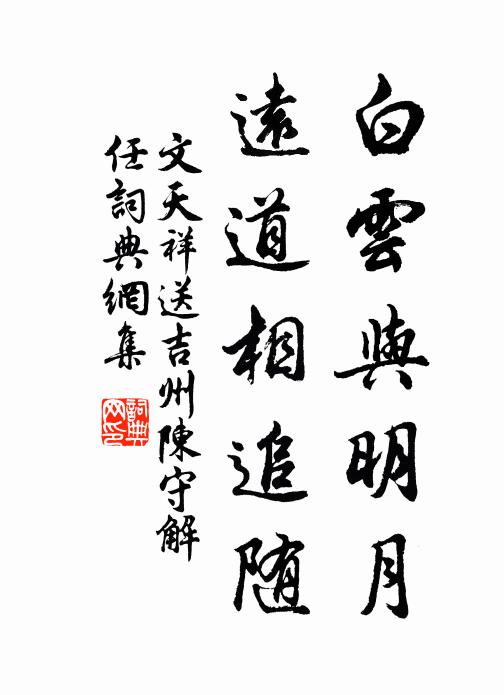 白雲與明月
遠道相追随
文天祥送吉州陳守解
任詞典網集
詞典
网印